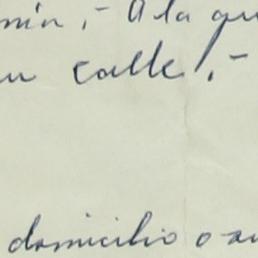 min,- A la qu
u calle!,-
domicilio o su